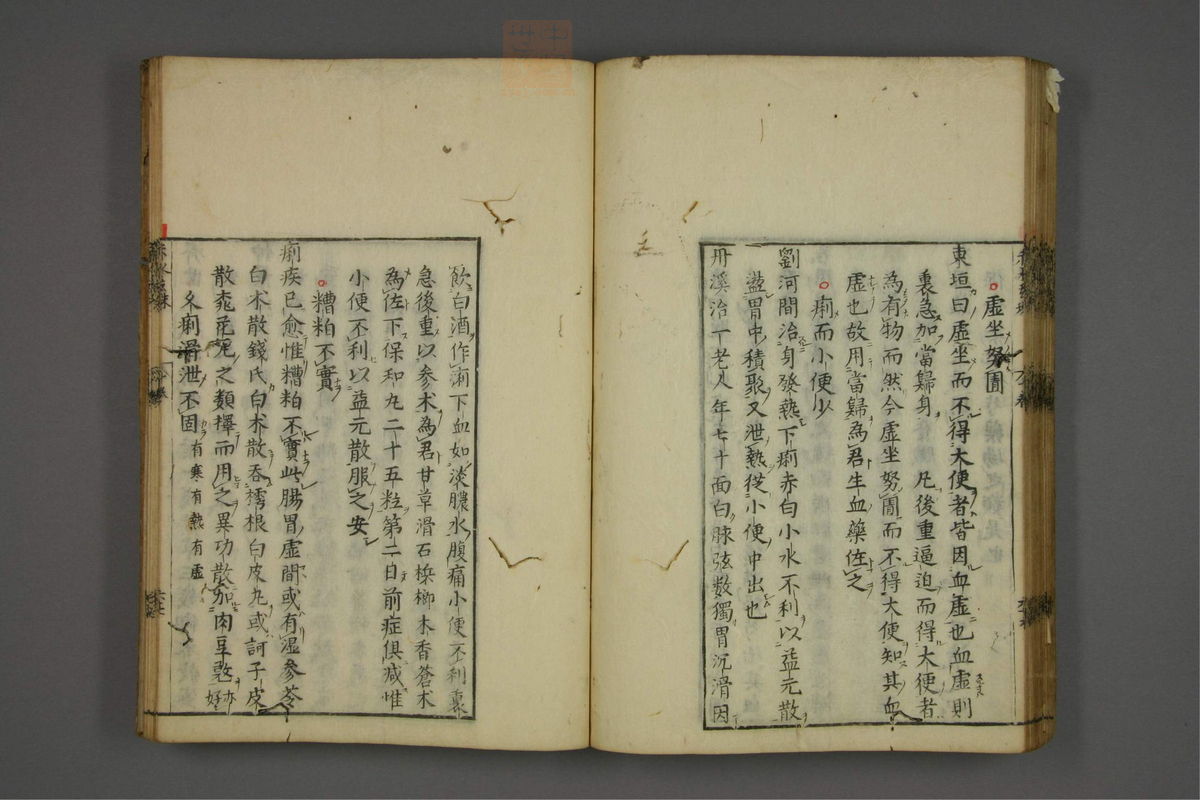 虛坐努圊
東垣曰虛坐而不得大便者皆因血虛也血虛則
裏急加當歸身凡後重逼迫而得大便者
為有物而然今虛坐努圊而不得大便知其血
虛也故用當歸為君生血藥佐之
痢而小便少
劉河間治身發熱下痢赤白小水不利以益元散
盪胃中積聚又泄熱從小便中出也
丹溪治一老人年七十面白脉弦数獨胃沉滑因
飲白酒作痢下血如淡膿水腹痛小便不利裏
急後重以參朮為君甘草滑石梹榔木香蒼朮
為佐下保和丸二十五粒第二日前症俱减惟
小便不利以益元散服之安
糟粕不實
痢疾已愈惟糟粕不實此腸胃虛間或有湿參苓
白朮散錢氏白朮散吞樗根白皮丸或訶子皮
散 之類擇而用之異功散加肉豆 亦好
久痢滑泄不固 有寒有熱有虛